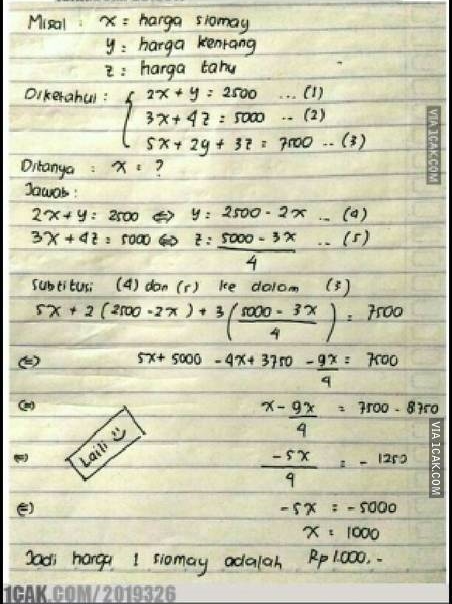 Misal : x = harga siomay
y = harga kentang
z = harga tahu
Diketahui : 2x + y = 2500 ... (1)
3x + 4z = 5000 .. (2)
5x + 2y + 3z = 7500 .. (3)
Ditanya : x = ?
Jawab :
2x + y = 2500 <=> y = 2500 - 2x ... (4)
3x + 4z = 5000 <=> z = (5000 - 3x)/4 .. (5)
Subtitusi (4) dan (5) ke dalam (3)
5x + 2(2500 - 2x) + 3((5000 - 3x)/4) = 7500
<=> 5x + 5000 - 4x + 3750 - 9x/4 = 7500
<=> x - 9x/4 = 7500 - 8750
<=> -5x/4 = -1250
<=> -5x = -5000
x = 1000
Jadi harga 1 siomay adalah Rp 1.000,-
Laili
VIA 1CAK.COM
VIA 1CAK.COM
1CAK.COM/2019326